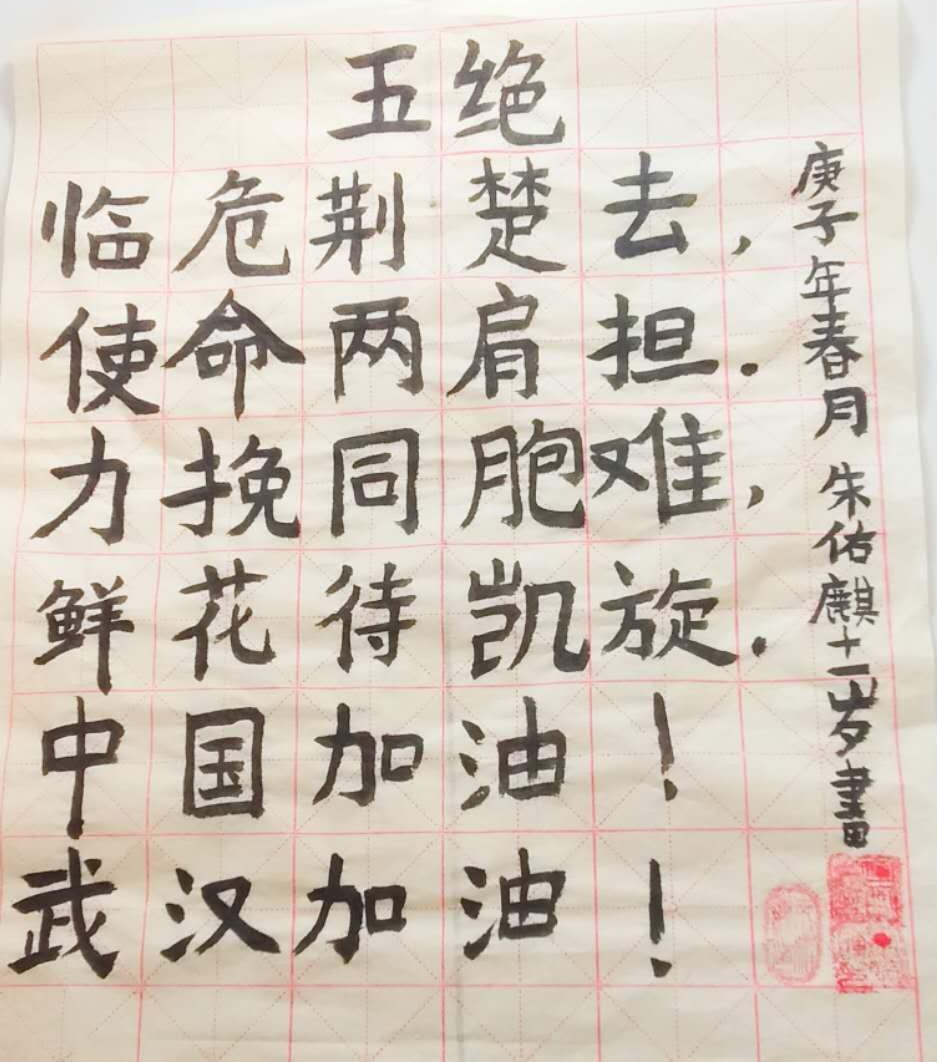 五绝
临危荆楚去，
使命两肩担.
力挽同胞难，
鲜花待凯旋.
中国加油！
武汉加油！
庚子年春月 朱佑麒十一岁書